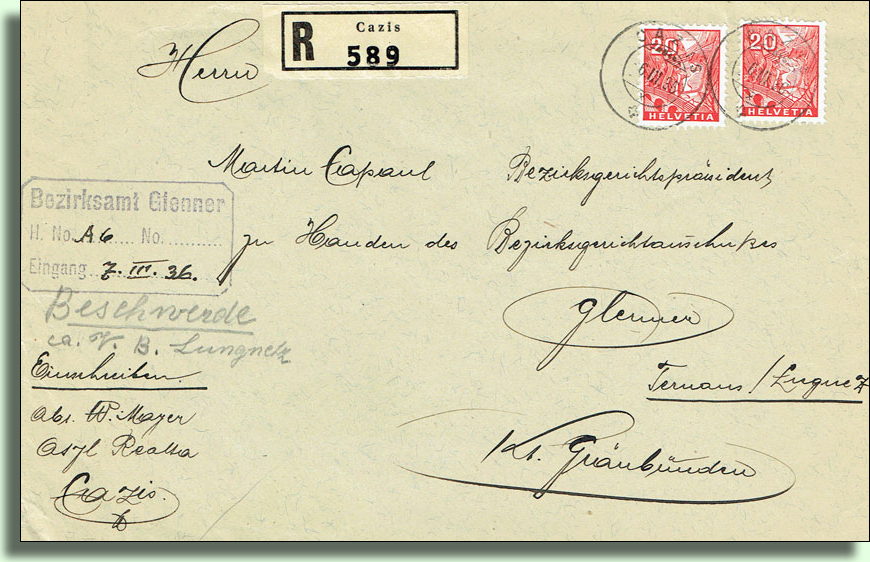 R
Cazis
589
Herrn
20
HELVETIA
20
HELVETIA
CAZIS
6.III.36
Martin Capaul Bezirksgerichtspräsident,
zu Handen des Bezirksgerichtauschusses
Glenner
Ternaus / Lugnez
Kt. Graubünden
Bezirksamt Glenner
H. No. A6 No.
Eingang 7. III. 36.
Beschwerde
ca. V. B. Lungnetz
Einschreiben.
Abs. W. Mayer
Asyl Realta
Cazis.